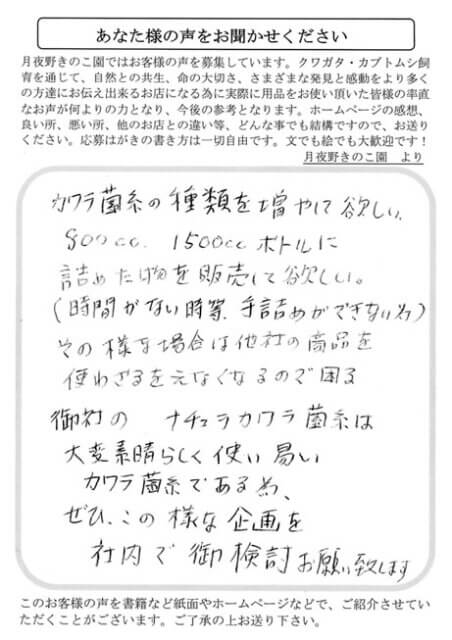 あなた様の声をお聞かせください
月夜野きのこ園ではお客様の声を募集しています。クワガタ・カブトムシ飼
育を通じて、自然との共生、命の大切さ、さまざまな発見と感動をより多く
の方達にお伝え出来るお店になる為に実際に用品をお使い頂いた皆様の率直
なお声が何よりの力となり、今後の参考となります。ホームページの感想、
良い所、悪い所、他のお店との違い等、どんな事でも結構ですので、お送り
ください。応募はがきの書き方は一切自由です。文でも絵でも大歓迎です！
月夜野きのこ園　より
カワラ菌糸の種類を増やして欲しい。
800cc. 1500ccボトルに
詰めた物を販売して欲しい。
(時間がない時等、手詰めができない為)
その様な場合は他社の商品を
使わざるを元なくなるので困る
御社の　ナチュラカワラ菌糸は
大変素晴らしく使い易い
カワラ菌糸である為、
ぜひ、この様な企画を
社内で御検討お願い致します
このお客様の声を書籍など紙面やホームページなどで、ご紹介させてい
ただくことがございます。ご了承の上お送り下さい。